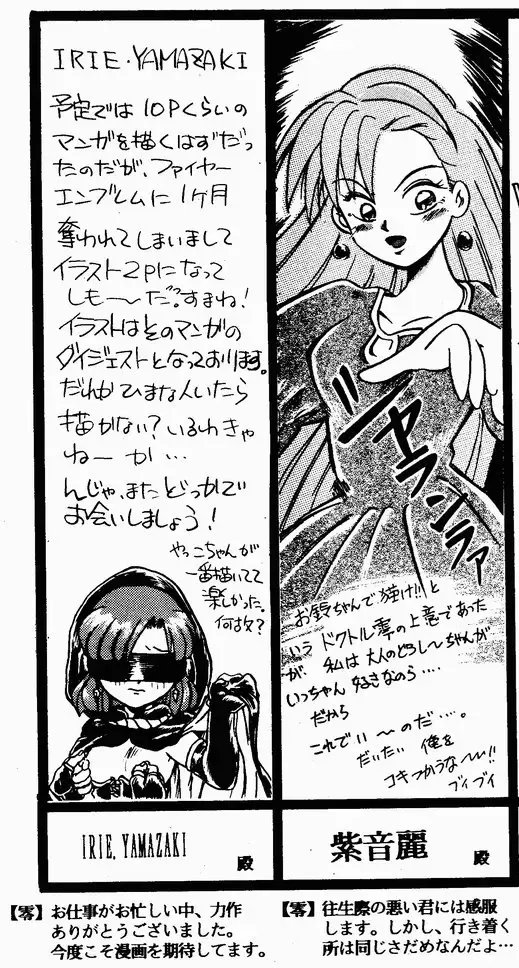 IRIE・YAMAZAKI
予定では10Pくらいの
マンガを描くはずだっ
たのだが、ファイヤー
エンブレムに1ヶ月
奪われてしまいまして
イラスト2Pになって
しも〜だ?すまね!
イラストはそのマンガの
ダイジェストとなっております。
だれか ひまな人いたら
描かない?いるわきゃ
ねーか…
んじゃ、また どっかで
お会いしましょう!
やっこちゃんが
一番描いてて
楽しかった。
何故?
IRIE, YAMAZAKI 殿
【零】お仕事がお忙しい中、力作
ありがとうございました。
今度こそ漫画を期待してます。
ジャランラァ
お鈴ちゃんで抜け!!と
いう ドクトル零の上意であった
が、私は大人のどろし〜ちゃんが
いっちゃん 好きなのら‥‥
だから
これでい〜のだ‥‥。
だいたい 俺を
コキつかうな〜!!
ブイブイ
紫音麗 殿
【零】往生際の悪い君には感服
します。しかし、行き着く
所は同じさだめなんだよ…